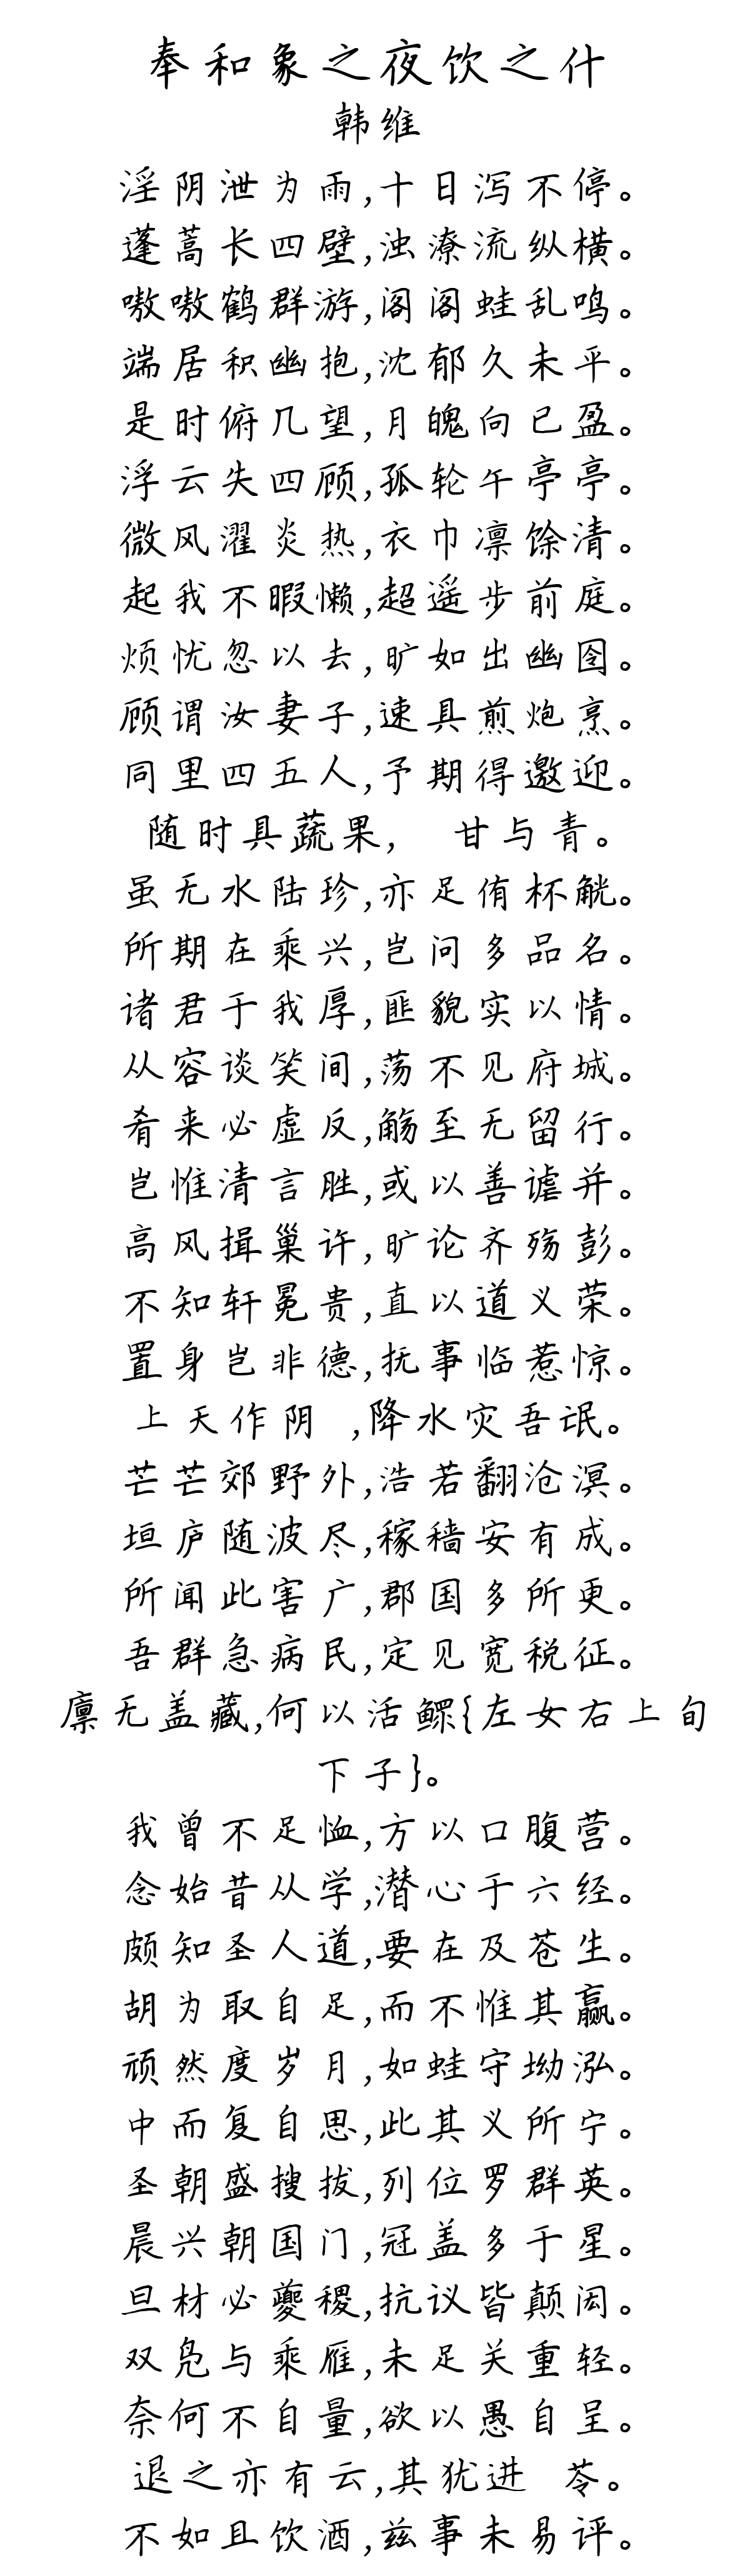 奉和象之夜饮之什
韩维
淫阴泄为雨,十日泻不停。
蓬蒿长四壁,浊潦流纵横。
嗷嗷鹤群游,阁阁蛙乱鸣。
端居积幽抱,沈郁久未平。
是时俯几望,月魄向已盈。
浮云失四顾,孤轮午亭亭。
微风濯炎热,衣巾凛馀清。
起我不暇懒,超遥步前庭。
烦忧忽以去,旷如出幽囹。
顾谓汝妻子,速具煎炮烹。
同里四五人,予期得邀迎。
随时具蔬果, 甘与青。
虽无水陆珍,亦足侑杯觥。
所期在乘兴,岂问多品名。
诸君于我厚,匪貌实以情。
从容谈笑间,荡不见府城。
肴来必虚反,觞至无留行。
岂惟清言胜,或以善谑并。
高风揖巢许,旷论齐殇彭。
不知轩冕贵,直以道义荣。
置身岂非德,抚事临惹惊。
上天作阴 ,降水灾吾氓。
芒芒郊野外,浩若翻沧溟。
垣庐随波尽,稼穑安有成。
所闻此害广,郡国多所更。
吾群急病民,定见宽税征。
廪无盖藏,何以活鳏{左女右上旬
下子}。
我曾不足恤,方以口腹营。
念始昔从学,潜心于六经。
颇知圣人道,要在及苍生。
胡为取自足,而不惟其赢。
顽然度岁月,如蛙守坳泓。
中而复自思,此其义所宁。
圣朝盛搜拔,列位罗群英。
晨兴朝国门,冠盖多于星。
旦材必夔稷,抗议皆颠闳。
双凫与乘雁,未足关重轻。
奈何不自量,欲以愚自呈。
退之亦有云,其犹进 苓。
不如且饮酒,兹事未易评。